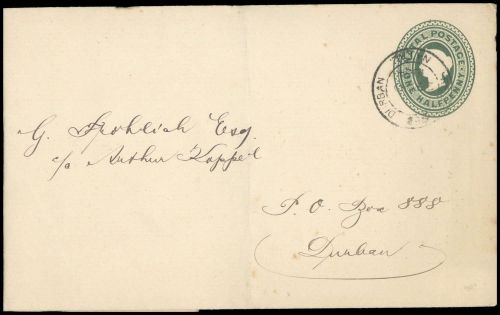 NATAL POSTAGE
ONE HALFPENNY
DURBAN
G. Frohlich Esq.
c/o Arthur Koppel
P. O. Box 888
Durban